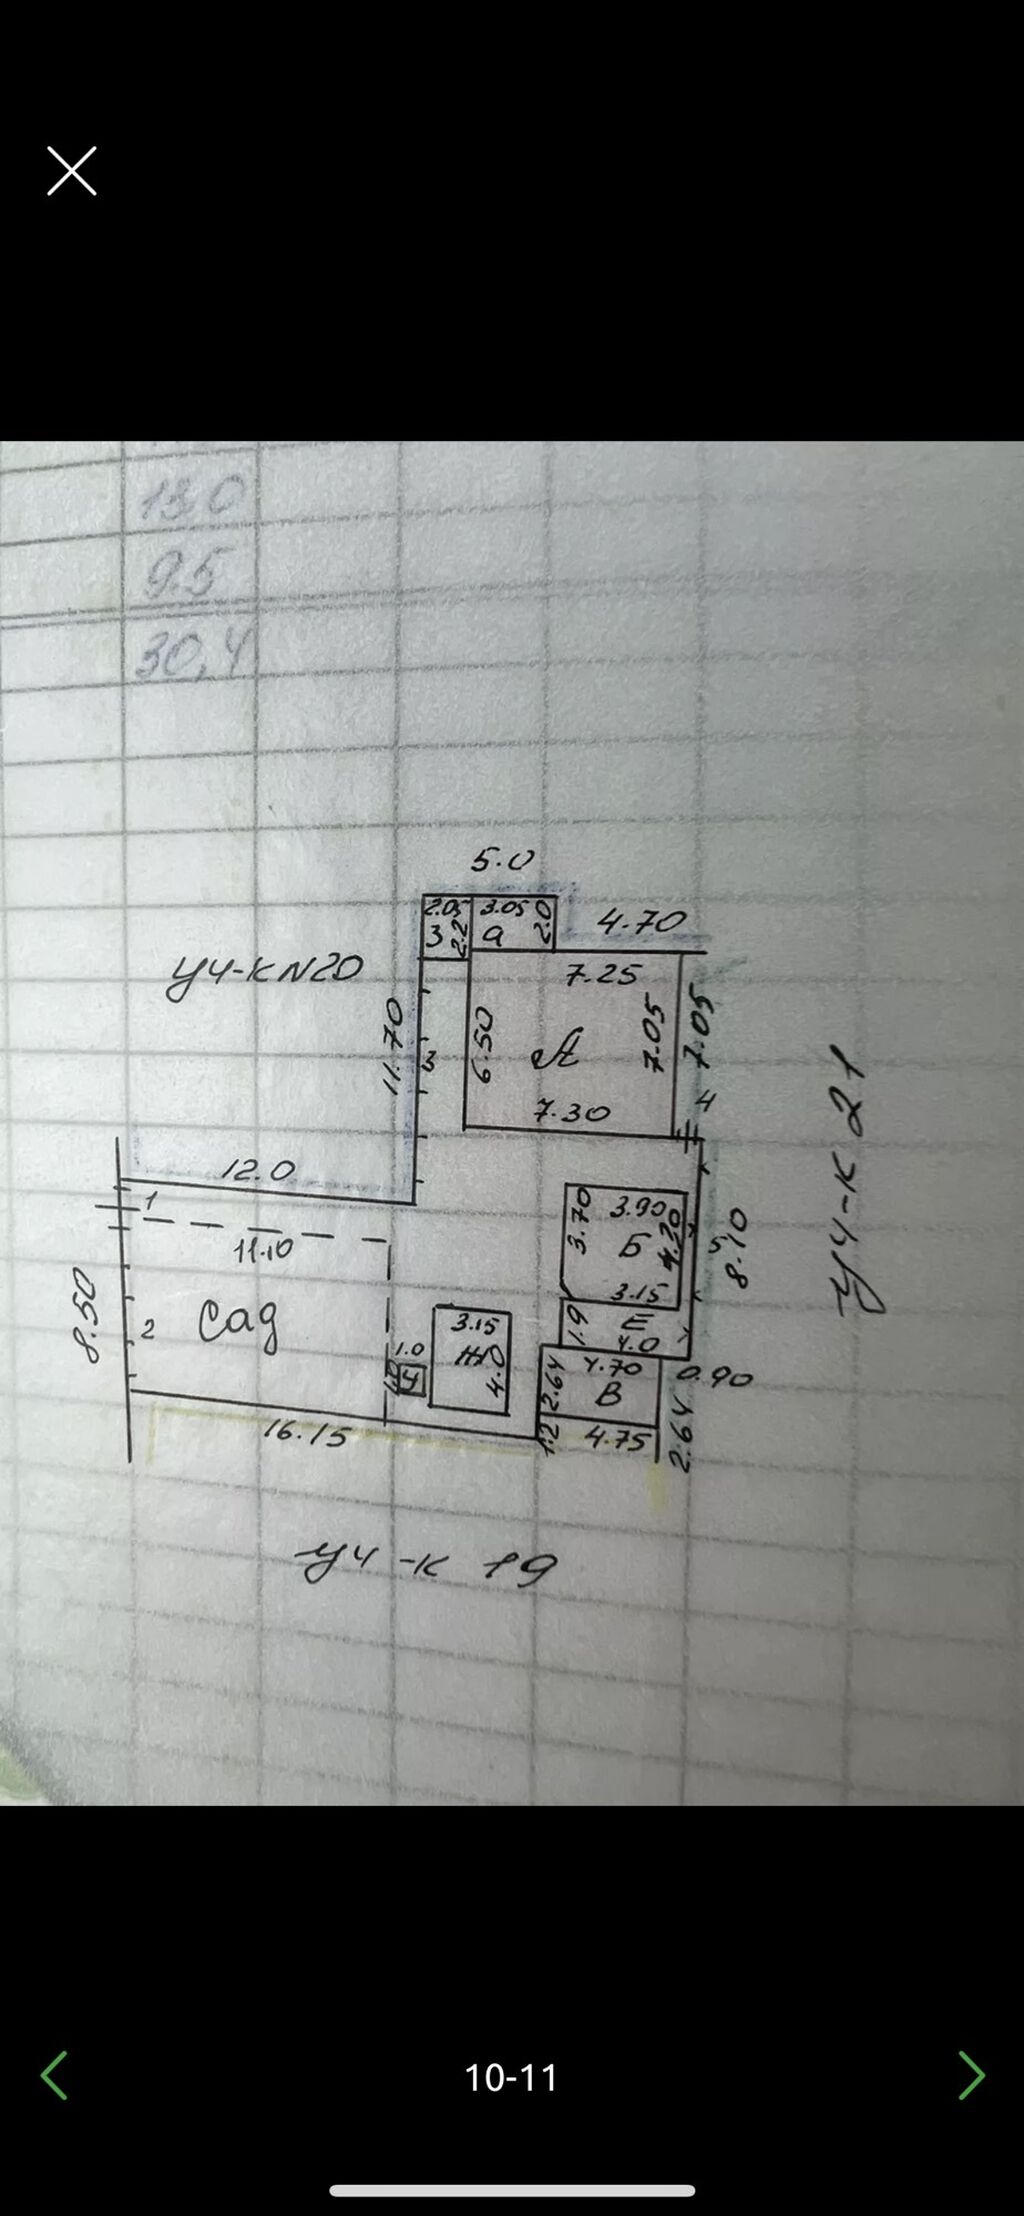 13.0
9.5
30,4
5.0
2.05 3.05
3 2.2 а 2.0
4.70
уч-к N20
7.25
11.70
3
6.50
А
7.05
7.05
7.30
4
уч-к 21
12.0
1
11.10
3.70
3.90
Б
4.20
5
8.10
8.50
2
Сад
3.15
1.9
Е
4.0
3.15
Ж
4.0
1.0
1.0
У
4.70
0.90
2.64
В
2.64
16.15
1.2
4.75
уч-к 19
10-11